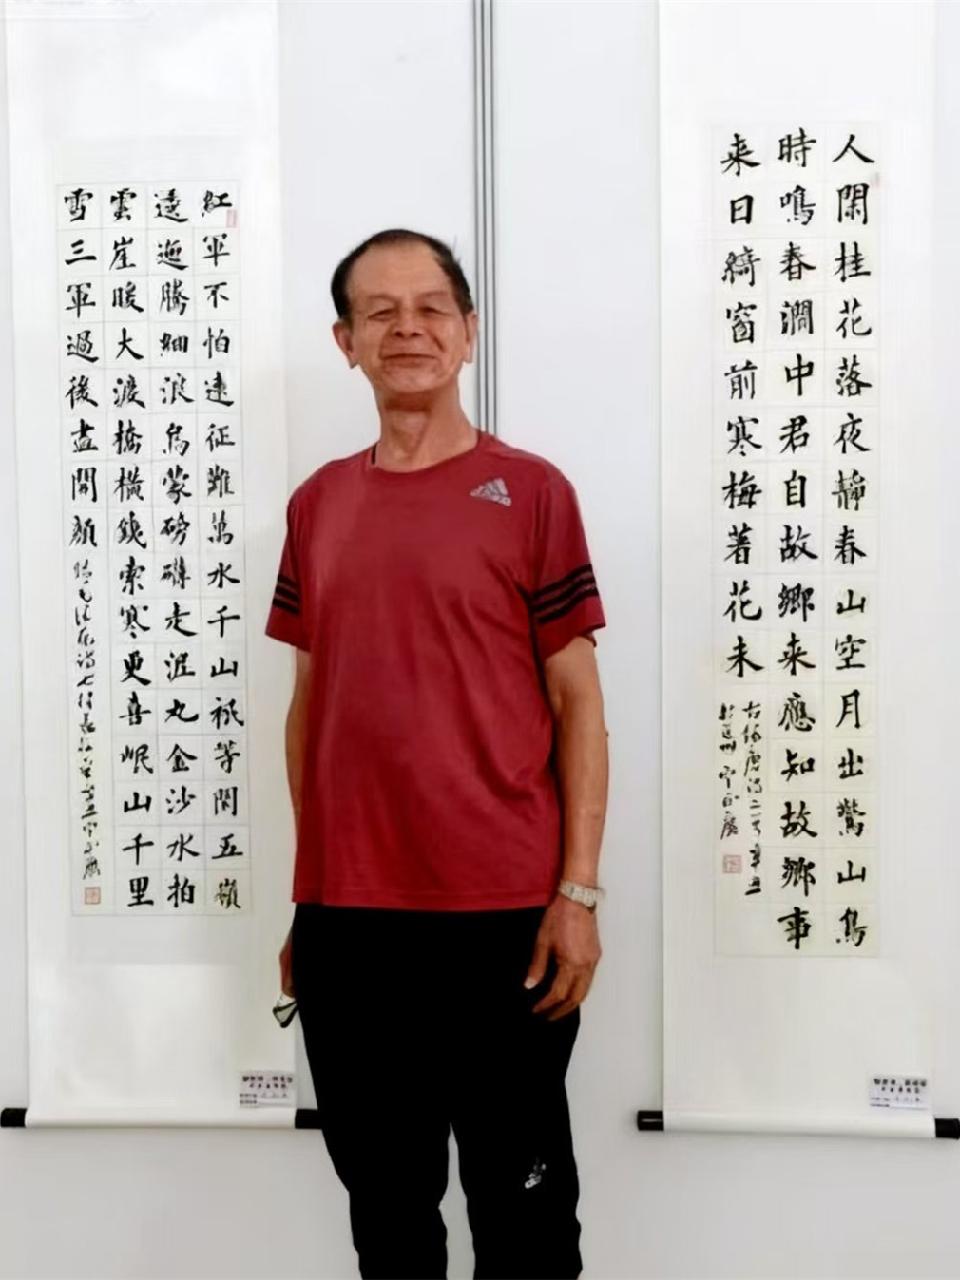 人閑桂花落夜靜春山空月出驚山鳥
時鳴春澗中君自故鄉来應知故鄉事
来日綺窗前寒梅著花未
唐詩二首辛丑
紅軍不怕遠征難萬水千山祇等閑五嶺
逶迤騰細浪烏蒙磅礴走泥丸金沙水拍
雲崖暖大渡橋橫鐵索寒更喜岷山千里
雪三軍過後盡開顏